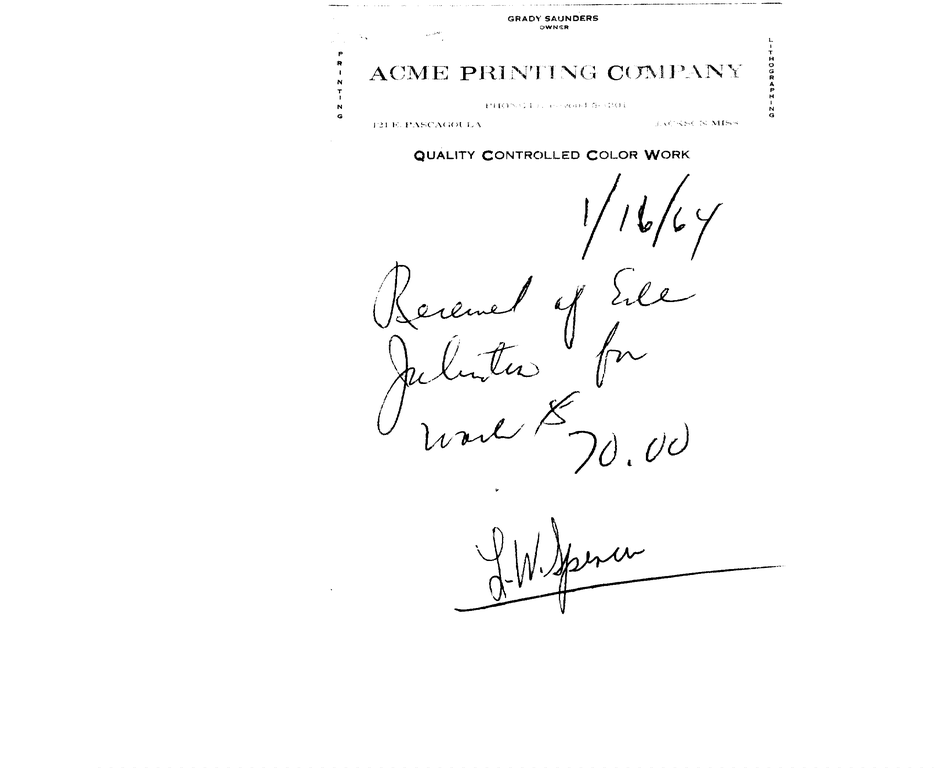 GRADY SAUNDERS
OWNER
PRINTING
LITHOGRAPHING
ACME PRINTING COMPANY
121 E. PASCAGOULA JACKSON MISS
QUALITY CONTROLLED COLOR WORK
1/16/64
Received of Erle
Johnston for
work $
70.00
L.W. Spencer